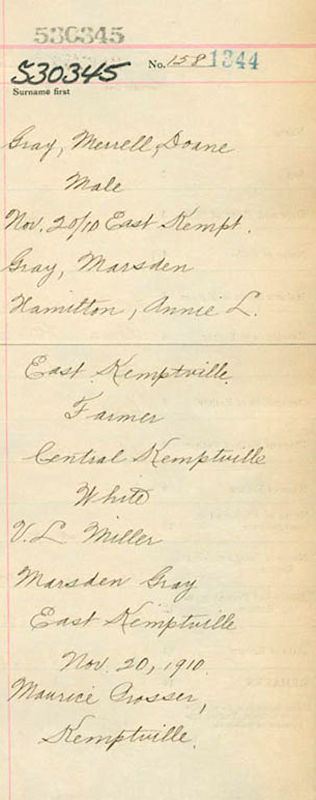 530345
530345 No. 158 1344
Surname first
Gray, Merrell, Doane
Male
Nov. 20/10 East Kempt.
Gray, Marsden
Hamilton, Annie L.
East Kemptville.
Farmer
Central Kemptville
White
V. L. Miller
Marsden Gray
East Kemptville
Nov. 20, 1910.
Maurice Prosser,
Kemptville.